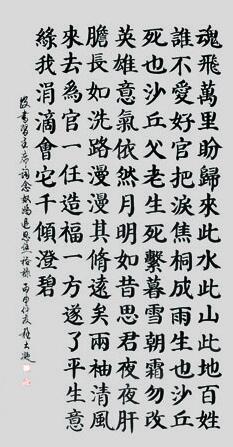 魂飛萬里盼歸來此水此山此地百姓
誰不愛好官把淚焦桐成雨生也沙丘
死也沙丘父老生死繫暮雪朝霜勿改
英雄意氣依然月明如昔思君夜夜肝
膽長如洗路漫漫其脩遠矣兩袖清風
來去為官一任造福一方遂了平生意
綠我涓滴會它千頃澄碧
書習主席詞念奴嬌追思焦裕祿丙申仲夏